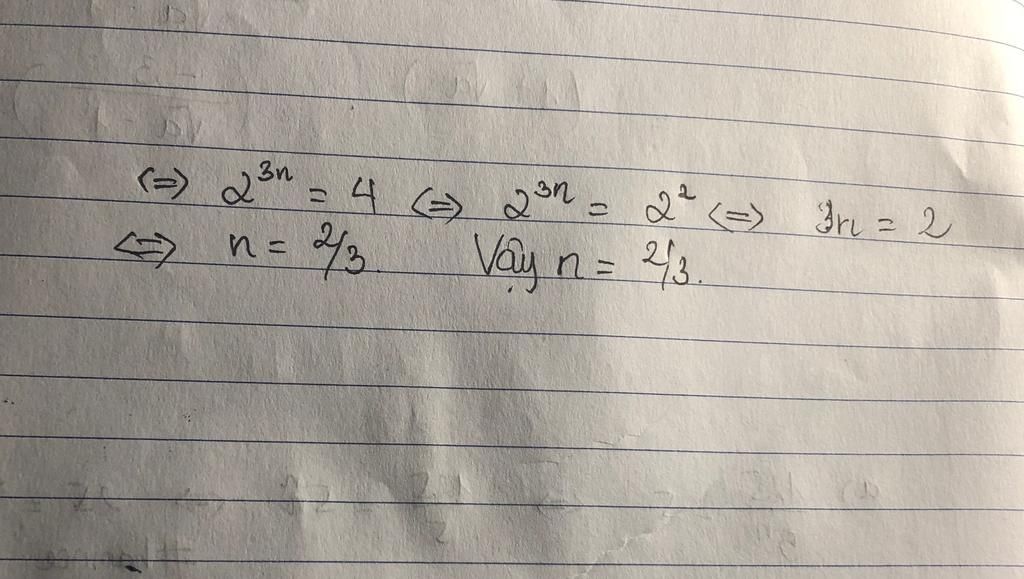 <=> 2^3n = 4 <=> 2^3n = 2^2 <=> 3n = 2
<=> n = 2/3. Vậy n = 2/3.